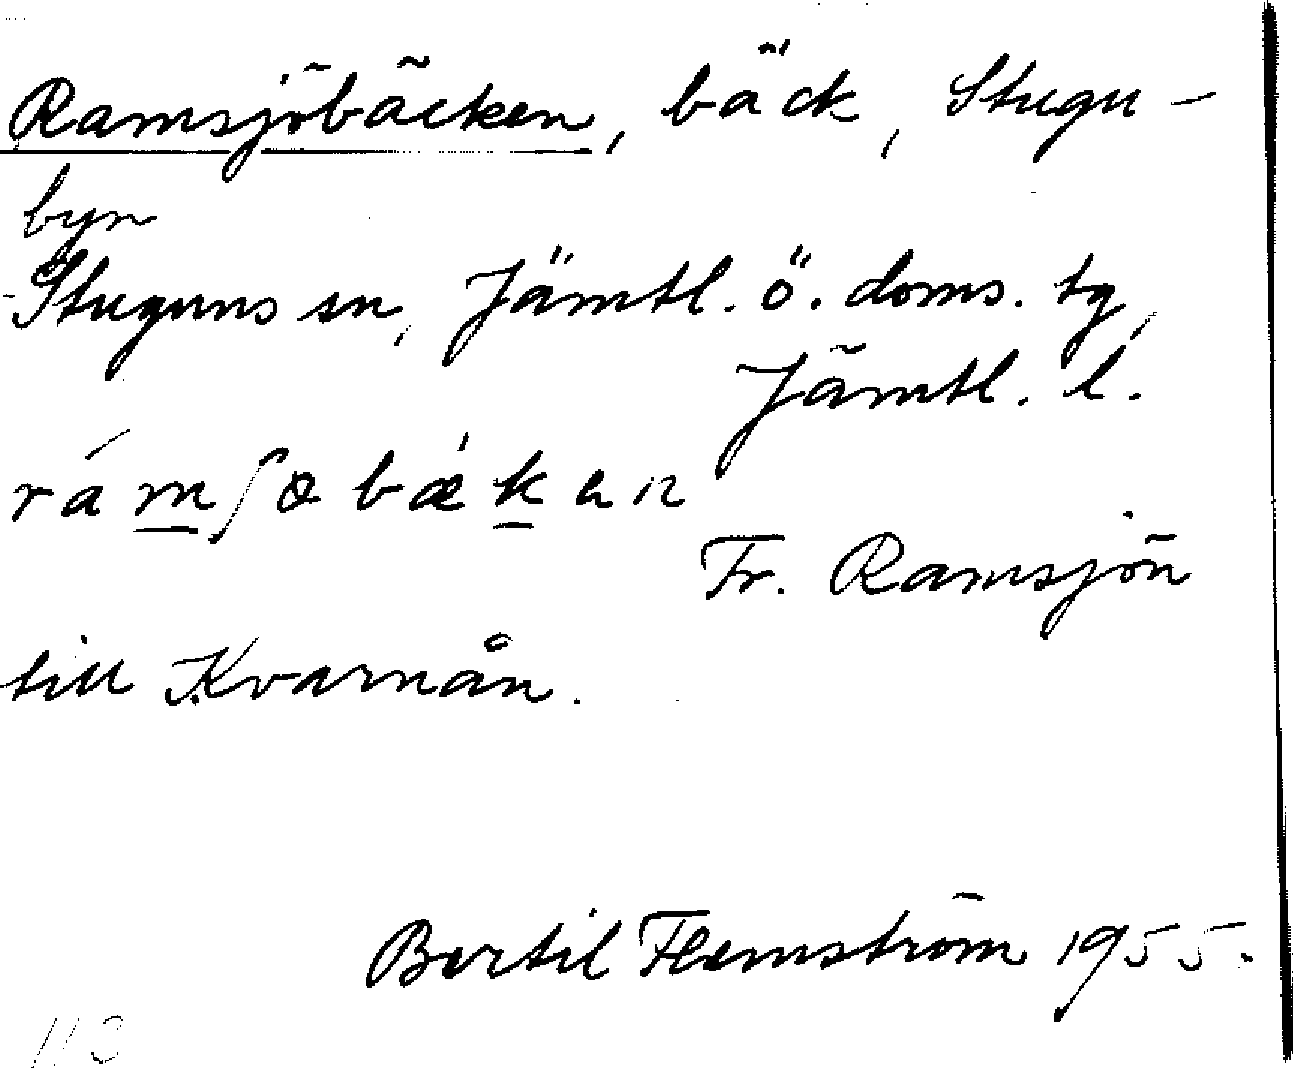 Ramsjöbäcken, bäck, Stugu-
byn
Stuguns sn, Jämtl. ö. doms. tg,
Jämtl. l.
rámʃobǽken
Fr. Ramsjön
till Kvarnån.
Bertil Flemström 1955.
113